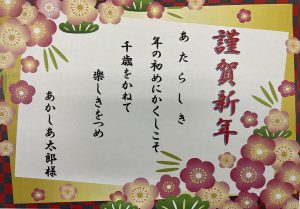 謹賀新年
あたらしき
年の初めにかくしこそ
千歳をかねて
楽しきをつめ
あかしあ太郎様